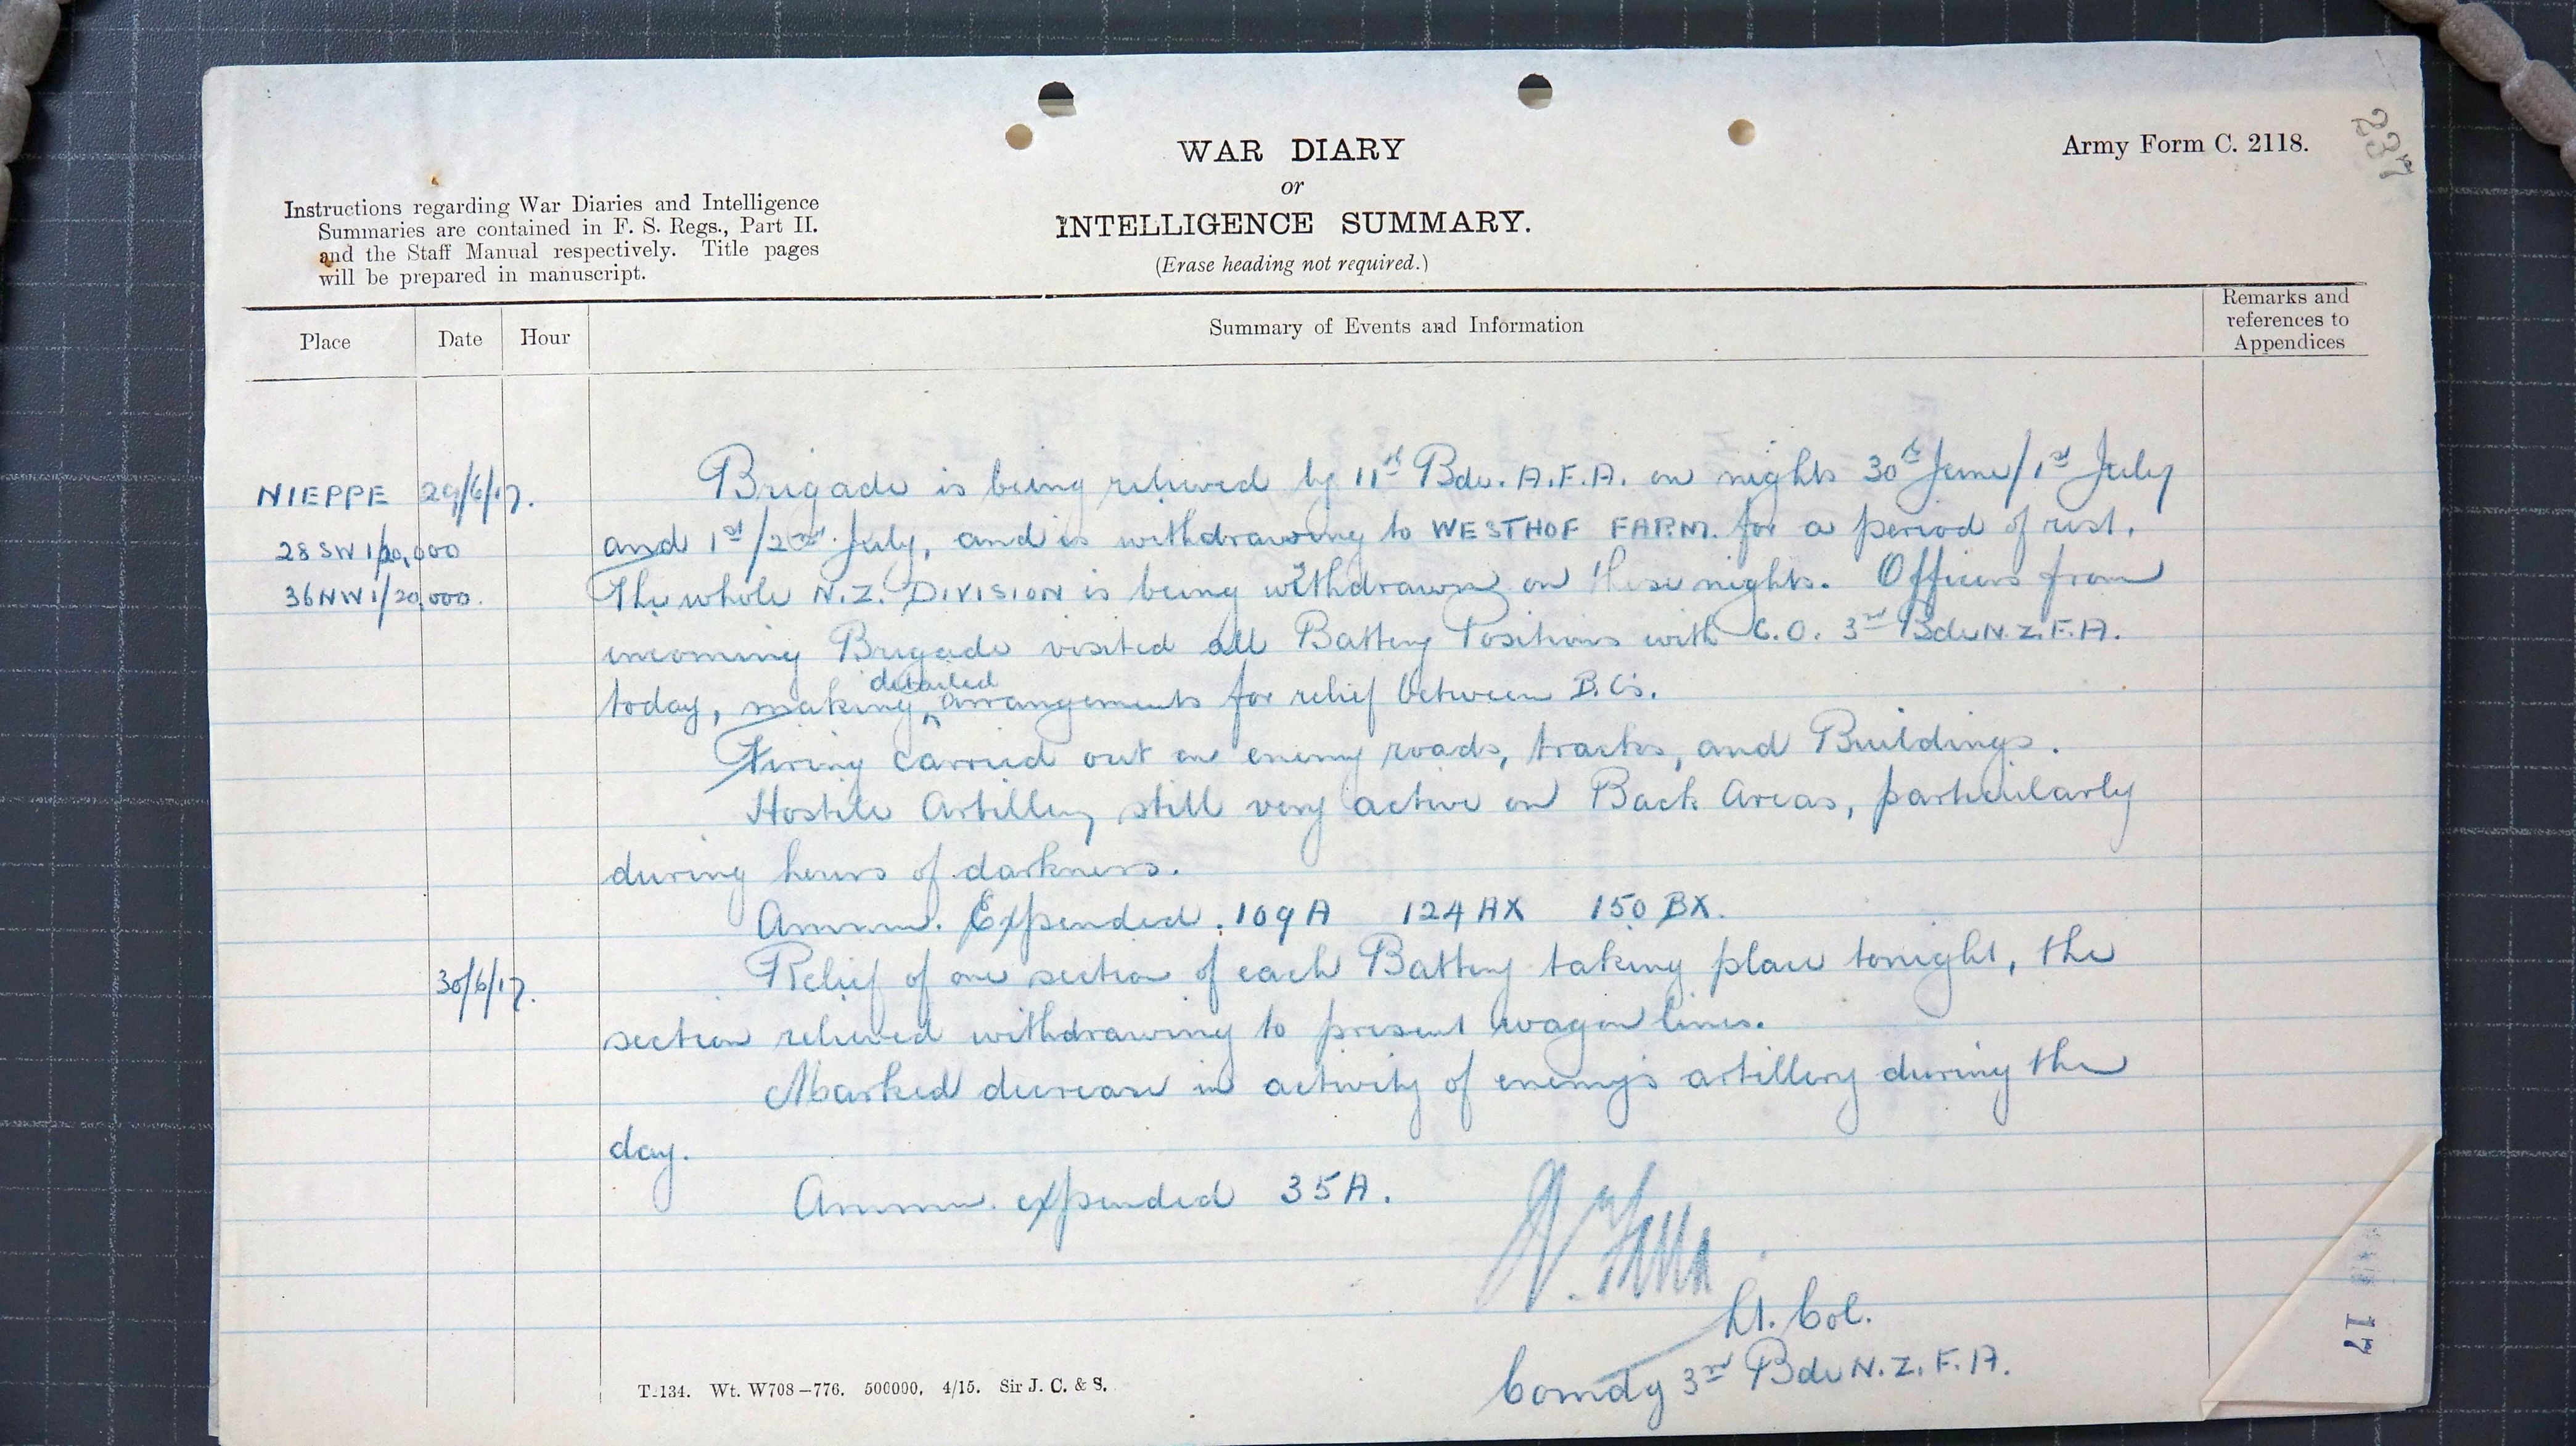 WAR DIARY
or
INTELLIGENCE SUMMARY.
(Erase heading not required.)
Army Form C. 2118.
237
Instructions regarding War Diaries and Intelligence
Summaries are contained in F. S. Regs., Part II.
and the Staff Manual respectively. Title pages
will be prepared in manuscript.
Place Date Hour Summary of Events and Information Remarks and
references to
Appendices
NIEPPE 29/6/17. Brigade is being relieved by 11th Bde. A.F.A. on nights 30th June/1st July
28 SW 1/20,000 and 1st/2nd July, and is withdrawing to WESTHOF FARM. for a period of rest.
36NW 1/20,000. The whole N.Z. DIVISION is being withdrawn on these nights. Officers from
incoming Brigade visited all Battery Positions with C.O. 3rd Bde N.Z.F.A.
today, making detailed arrangements for relief between B.C's.
Firing carried out on enemy roads, tracks, and Buildings.
Hostile Artillery still very active on Back Areas, particularly
during hours of darkness.
Ammn. Expended. 109A 124AX 150BX.
30/6/17. Relief of one section of each Battery taking place tonight, the
section relieved withdrawing to present wagon lines.
Marked decrease in activity of enemy's artillery during the
day.
Ammn. expended 35A.
Lt. Col.
Comdg 3rd Bde N.Z.F.A.
T.134. Wt. W708-776. 500000. 4/15. Sir J. C. & S.
17